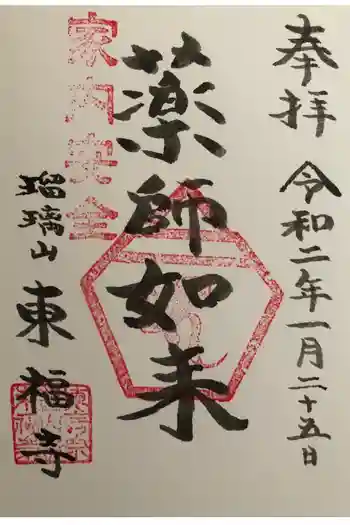 奉拝
令和二年一月二十五日
薬師如来
家内安全
瑠璃山
東福寺